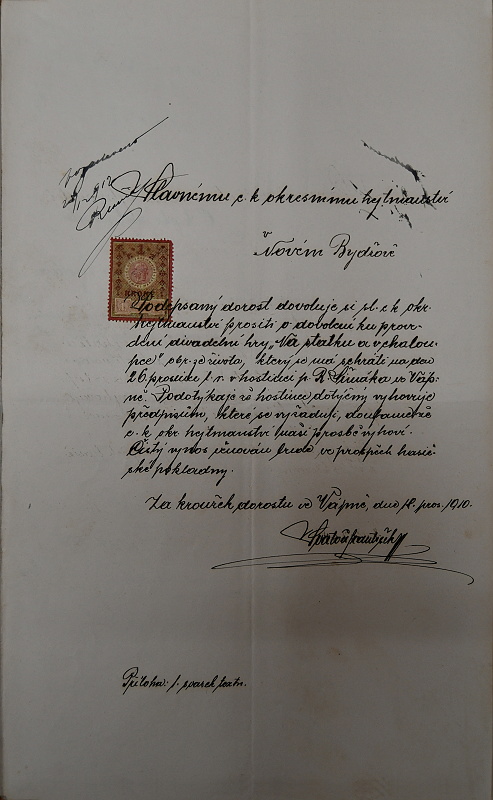 Slavnému c. k okresnímu hejtmanství
v
Novém Bydžově
Podepsaný dorost dovoluje si sl. c. k okr.
hejtmanství prositi o dovolení ku prove-
dení divadelní hry „Na statku a v chalou-
pce" obr. ze života, který se má sehráti na den
26 prosince t. r. v hostinci p. R. Šimáka ve Vápně.
ně. Podotýkaje že hostinec dotyčný vyhovuje
předpisům, které se vyžadují, doufáme že
c. k okr hejtmanství naší prosbě vyhoví.
Čistý výnos věnován bude ve prospěch hasič-
ské pokladny.
Za kroužek dorostu ve Vápně, dne 18. pros. 1910.
Příloha: 1. svazek textu.